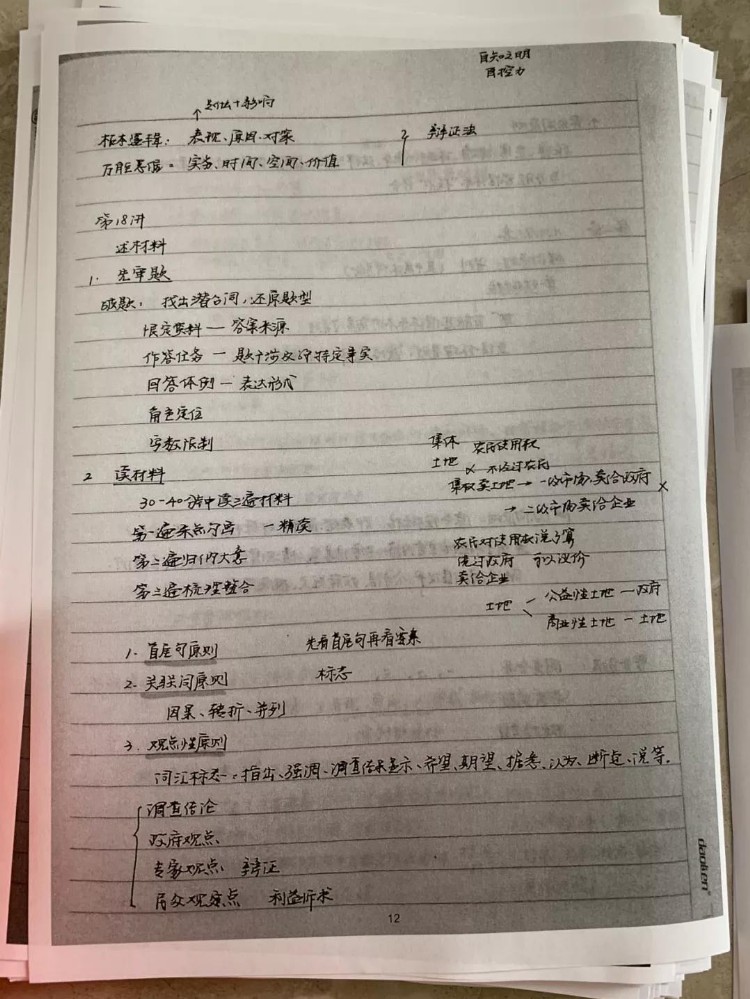 自知之明
自控力
↑ 划法+影响
标本逻辑: 表现、原因、对策
万能思维: 实务、时间、空间、价值
} 辩证法
第18讲
述材料
1. 先审题
破题: 找出潜台词,还原题型
限定资料 — 答案来源
作答任务 — 题干涉及的特定事实
回答体例 — 表达形式
角色定位
字数限制
2 读材料
30-40分钟读三遍材料
第一遍采点勾画 — 精读
第二遍归纳大意
第三遍梳理整合
集体土地
农民使用权
× 不经过农民
集权卖土地 → 一级市场 卖给政府 ×
→ 二级市场卖给企业
农民对使用权
绕过政府 可以议价
卖给企业
土地 < 公益性土地 — 政府
商业性土地 — 土地
1. 首尾句原则 先看首尾句再看答案
2. 关联词原则 标志
因果、转折、并列
3. 观点性原则
词汇标志: 指出、强调、调查结果显示、希望、期望、据悉、认为、断定、说等.
调查结论
政府观点
专家观点 辩证
民众观点 利益诉求
12
daoken